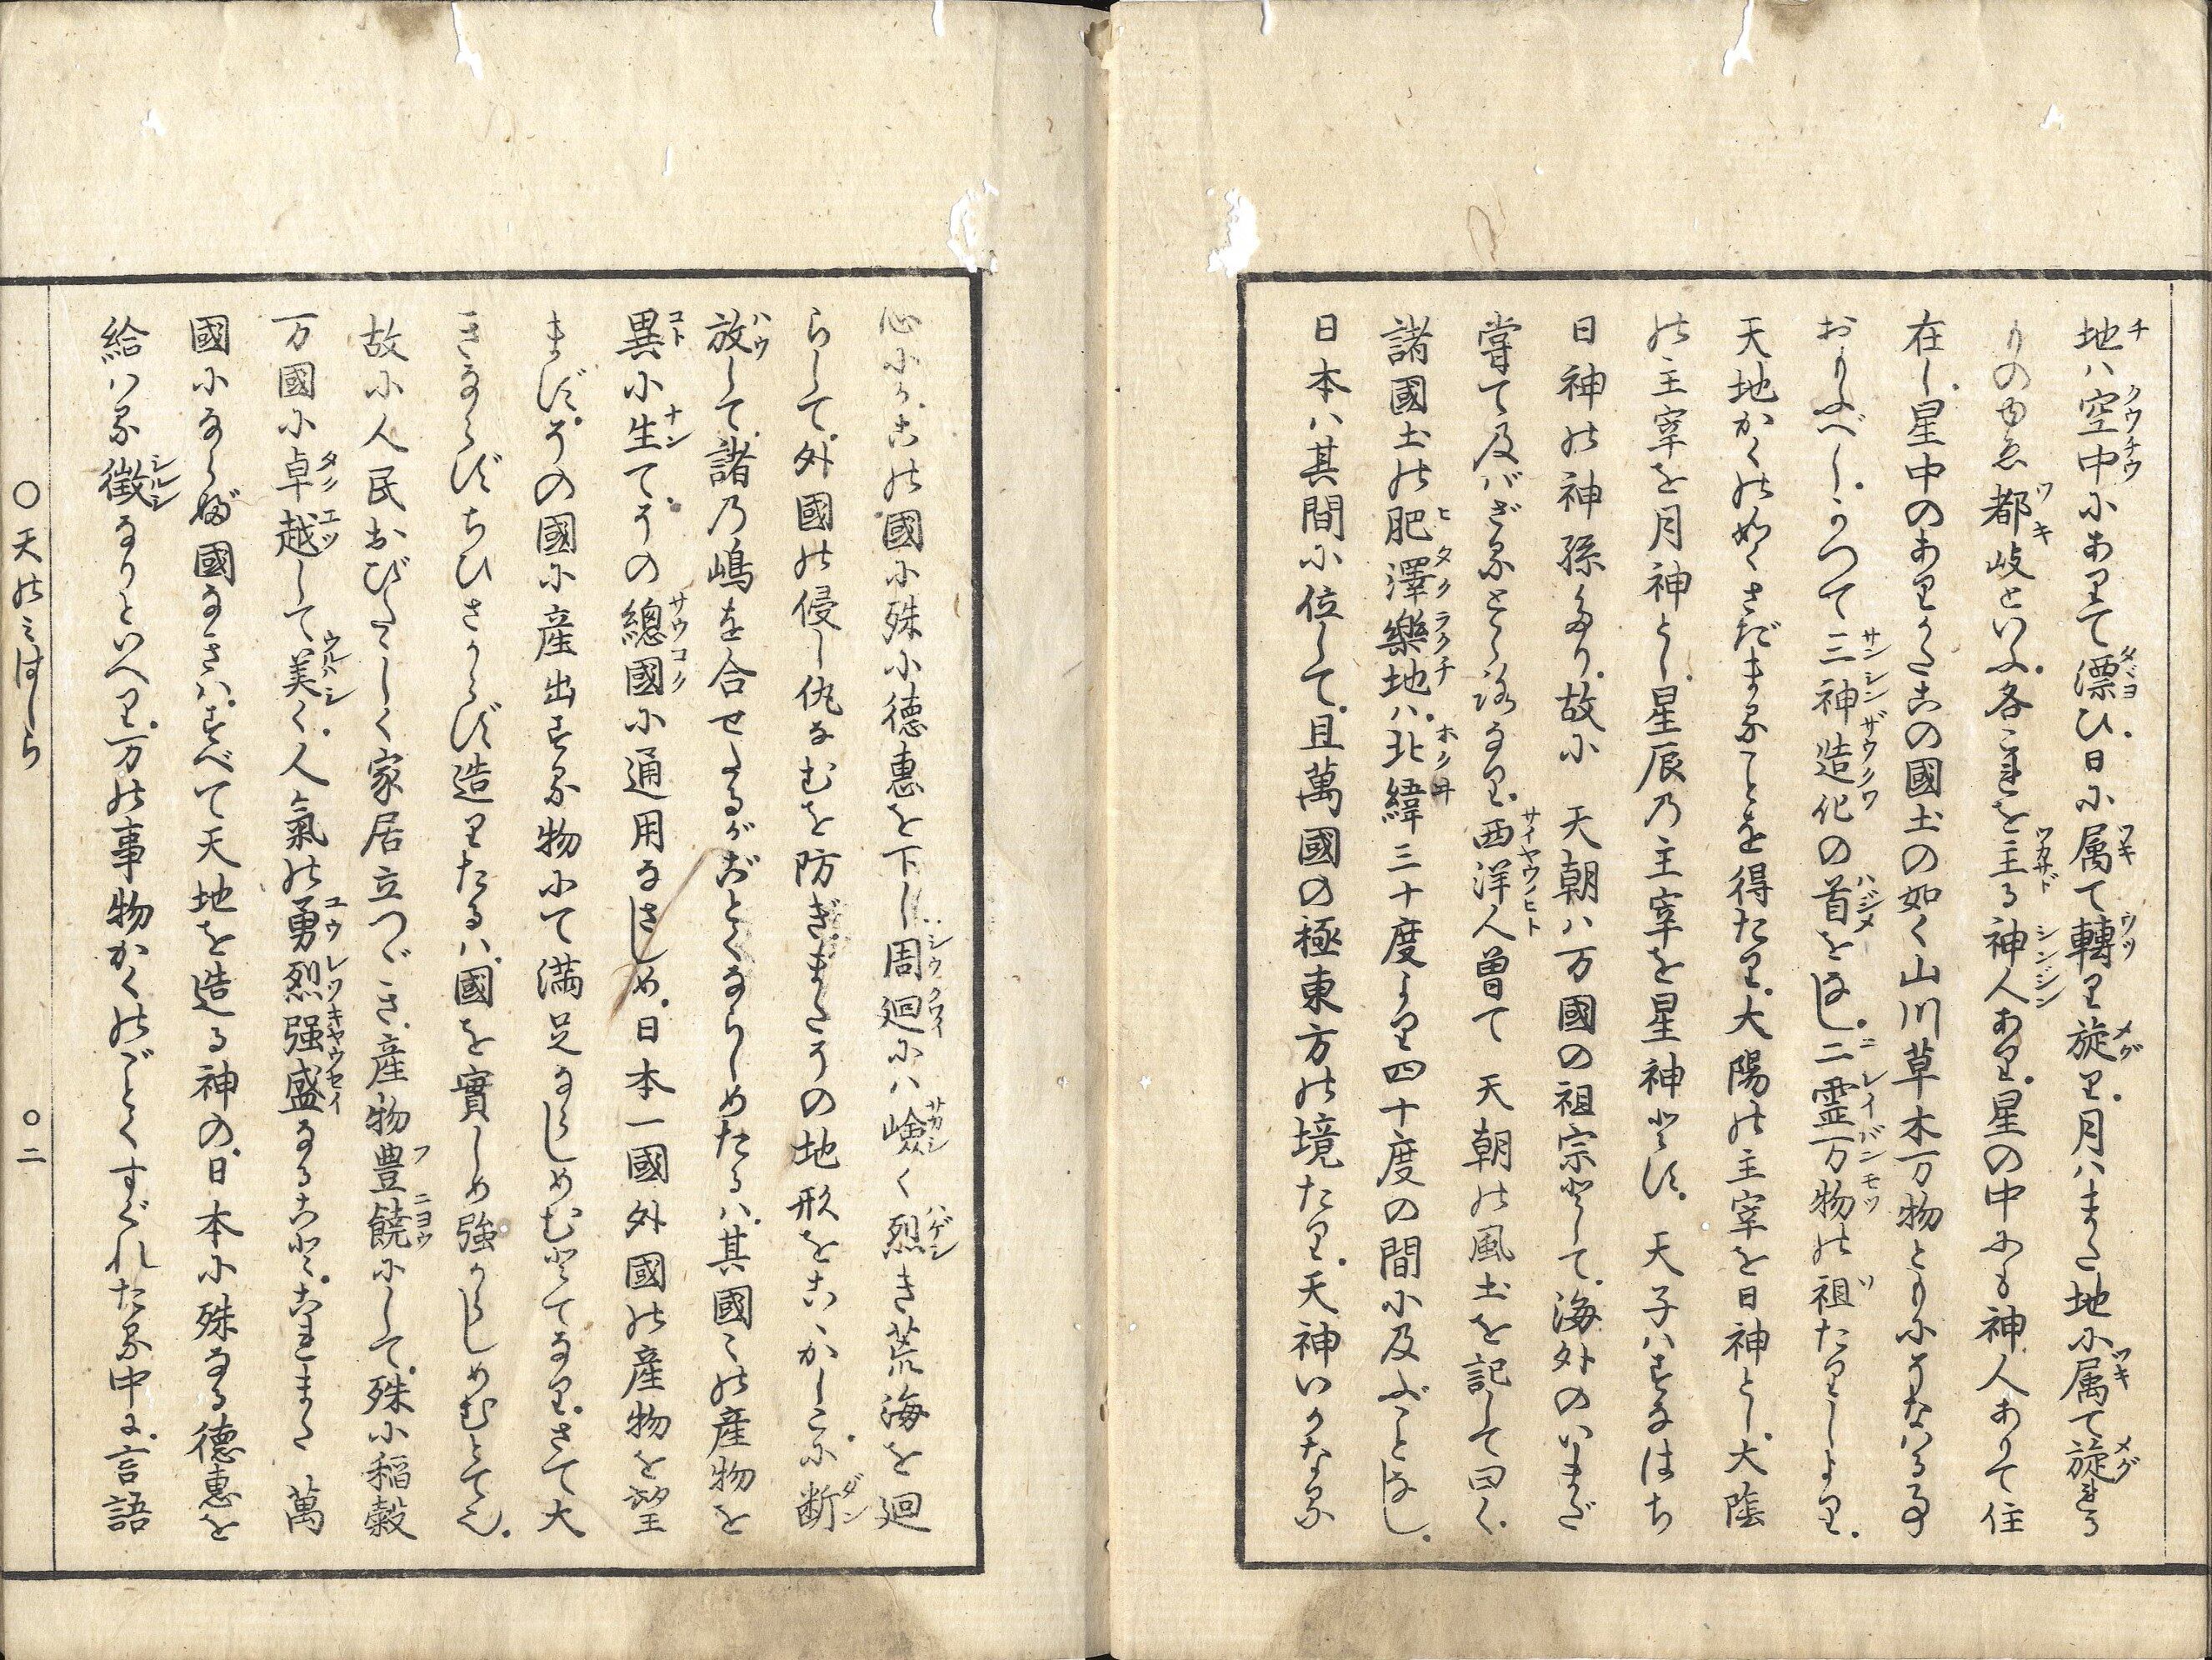 地ハ空中にありて漂ひ。日に属て轉り旋り。月ハまた地に属て旋れる
ものゆゑ都岐といふ。各これを主る神人あり。星の中にも神人ありて住
在し。星中のありかたこの國土の如く山川草木万物ともにそなはる事
おもふべし。かつて三神造化の首をなし。二霊万物の祖たりしより。
天地かくの如くさだまることを得たり。大陽の主宰を日神とし。大陰
の主宰を月神とし。星辰乃主宰を星神とす。天子ハすなはち
日神の神孫なり。故に 天朝ハ万國の祖宗として。海外のいまだ
嘗て及バざるところなり。西洋人曽て 天朝の風土を記して曰く。
諸國土の肥澤樂地ハ。北緯三十度より四十度の間に及ぶことなし。
日本ハ其間に位して。且萬國の極東方の境たり。天神いかなる
心にかこの國に殊に徳惠を下し周廻にハ嶮く烈き荒海を廻
らして。外國の侵し仇なむを防ぎ。またその地形をこゝかしこに断
放して。諸乃嶋を合せたるがごとくならしめたるハ。其國〻の産物を
異に生て。その總國に通用なさしめ。日本一國外國の産物を望
まず。その國に産出する物にて満足なさしめむとてなり。さて大
きならずちひさからず造りたるハ。國を實しめ強からしめむとてや。
故に人民おびたゝしく家居立つゞき。産物豊饒にして。殊に稲穀
万國に卓越して美く。人氣の勇烈强盛なること。これまた 萬
國にならぶ國なきハ。すべて天地を造る神の。日本に殊なる徳惠を
給ハる徴なりといへり。万の事物かくのごとくすぐれたる中に。言語
〇天のみはしら 〇二